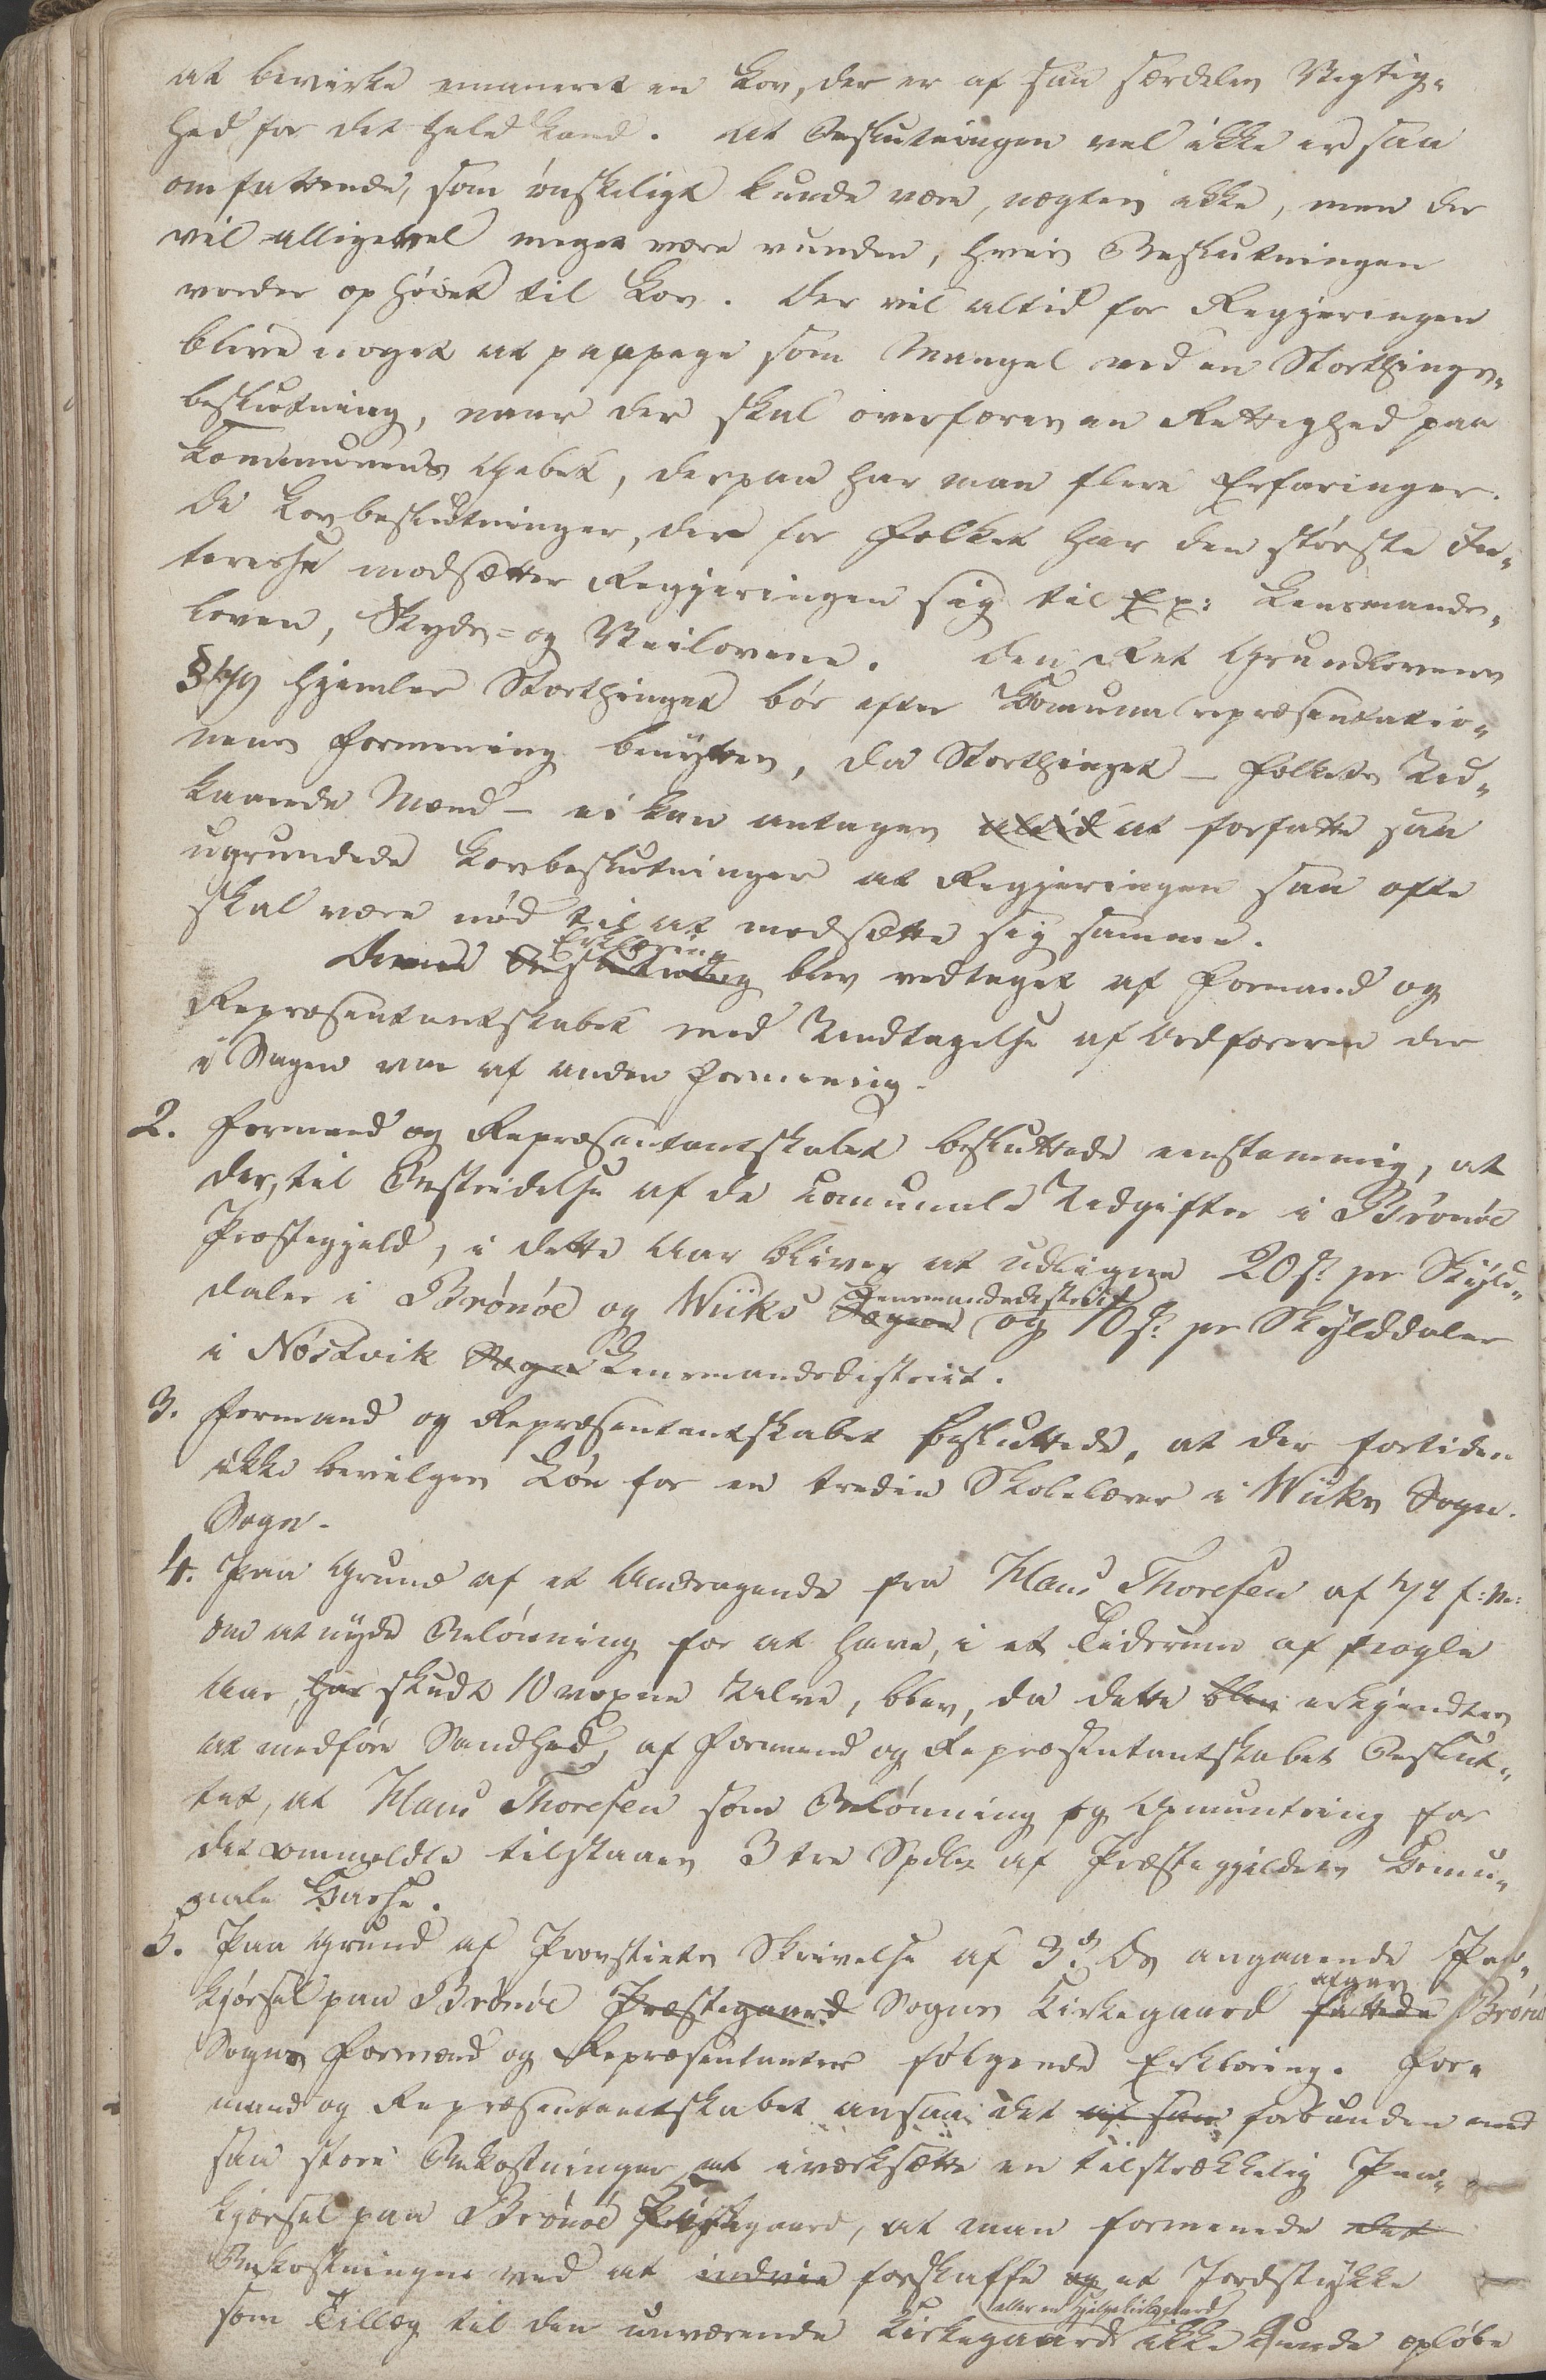 at bevirke emaneret en Lov, der er af saa særdeles Vigtig-
hed for det hele Land. At Beslutningen vel ikke er saa
omfattende, som ønskeligt kunde være, nægtes ikke, men der
vil alligevel meget være vunden, hvis Beslutningen
vorder ophøiet til Lov. Der vil altid for Regjeringen
blive noget at paapege som Mangel ved en Storthings-
beslutning, naar der skal overføres en Rettighed paa
Communens Gebet, derpaa har man flere Erfaringer.
De Lovbeslutninger, der for Folket har den største In-
teresse modsætter Regjeringen sig til Ex: Lensmands-
loven, Skyds- og Veilovene. Den Ret Grundlovens
§ 79 hjemler Storthinget bør efter Communalrepræsentatio-
nens Formening benyttes, da Storthinget - Folkets Ud-
kaarede Mænd - ei kan antages altid at forfatte saa
ugrundede Lovbeslutninger at Regjeringen saa ofte
skal være nød til at modsætte sig samme.
Erklæring
Denne Beslutning blev vedtaget af Formand og
Repræsentantskabet med Undtagelse af Ordføreren der
i Sagen var af anden Formening.
2. Formand og Repræsentantskabet besluttede eenstemmig, at
der, til Bestridelse af de communale Udgifter i Brønøe
Præstegjeld, i dette Aar bliver at udligne 20 s. pr Skyld-
Lensmandsdistrict
daler i Brønøe og Wiiks Sogne og 16 s. pr Skylddaler
i Nøstvik Sogn Lensmandsdistrict.
3. Formand og Repræsentantskabet besluttede, at der fortiden
ikke bevilges Løn for en tredie Skolelærer i Wiiks Sogn.
Sogn.
4. Paa Grund af et Andragende fra Hans Thoresen af 7/4 f: M:
om at nyde Belønning for at have, i et Tidsrum af nogle
Aar har skudt 10 voxne Ulve, blev, da dette blev erkjendtes
at medføre Sandhed, af Formand og Repræsentantskabet Beslut-
tet, at Hans Thoresen som Belønning og Opmuntring for
det ommeldte tilstaaes 3 tre Spdlr af Præstegjeldets Commu-
nale Kasse.
5. Paa Grund af Provstiets Skrivelse af 3d Ds angaaende Paa-
afgav
kjørsel paa Brønøe Præstegaard Sogns Kirkegaard fattede Brønø
Sogns Formænd og Repræsentanter følgende Erklæring. For-
mand og Repræsentantskabet ansaae det at saa forbunden med
saa store Bekostninger at iværksætte en tilstrækkelig Paa-
kjørsel paa Brønøe Kirkegaard, at man formenede det
Bekostningen ved at indvie forskaffe og et Jordstykke
eller en Hjelpekirkegaard
som Tillæg til den nuværende Kirkegaard ikke kunde opløbe